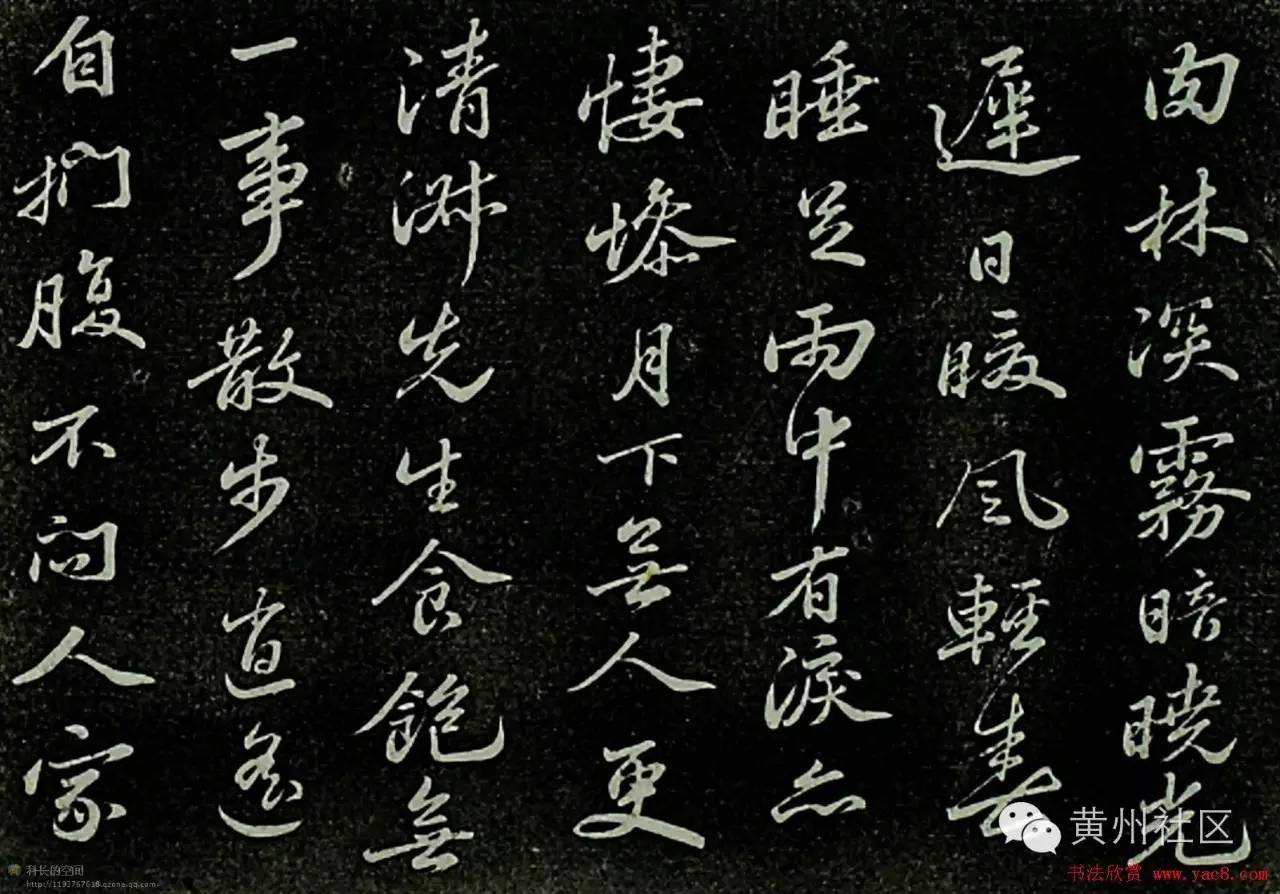 肉林深霧暗曉光
遲日暖風輕春
睡足雨中有淚亦
悽慘月下無人更
清淑先生食飽無
一事散步逍遙
自捫腹不問人家
黄州社区
书法欣赏 www.yac8.com
科长的空间
http://1193767618.qzone.qq.com